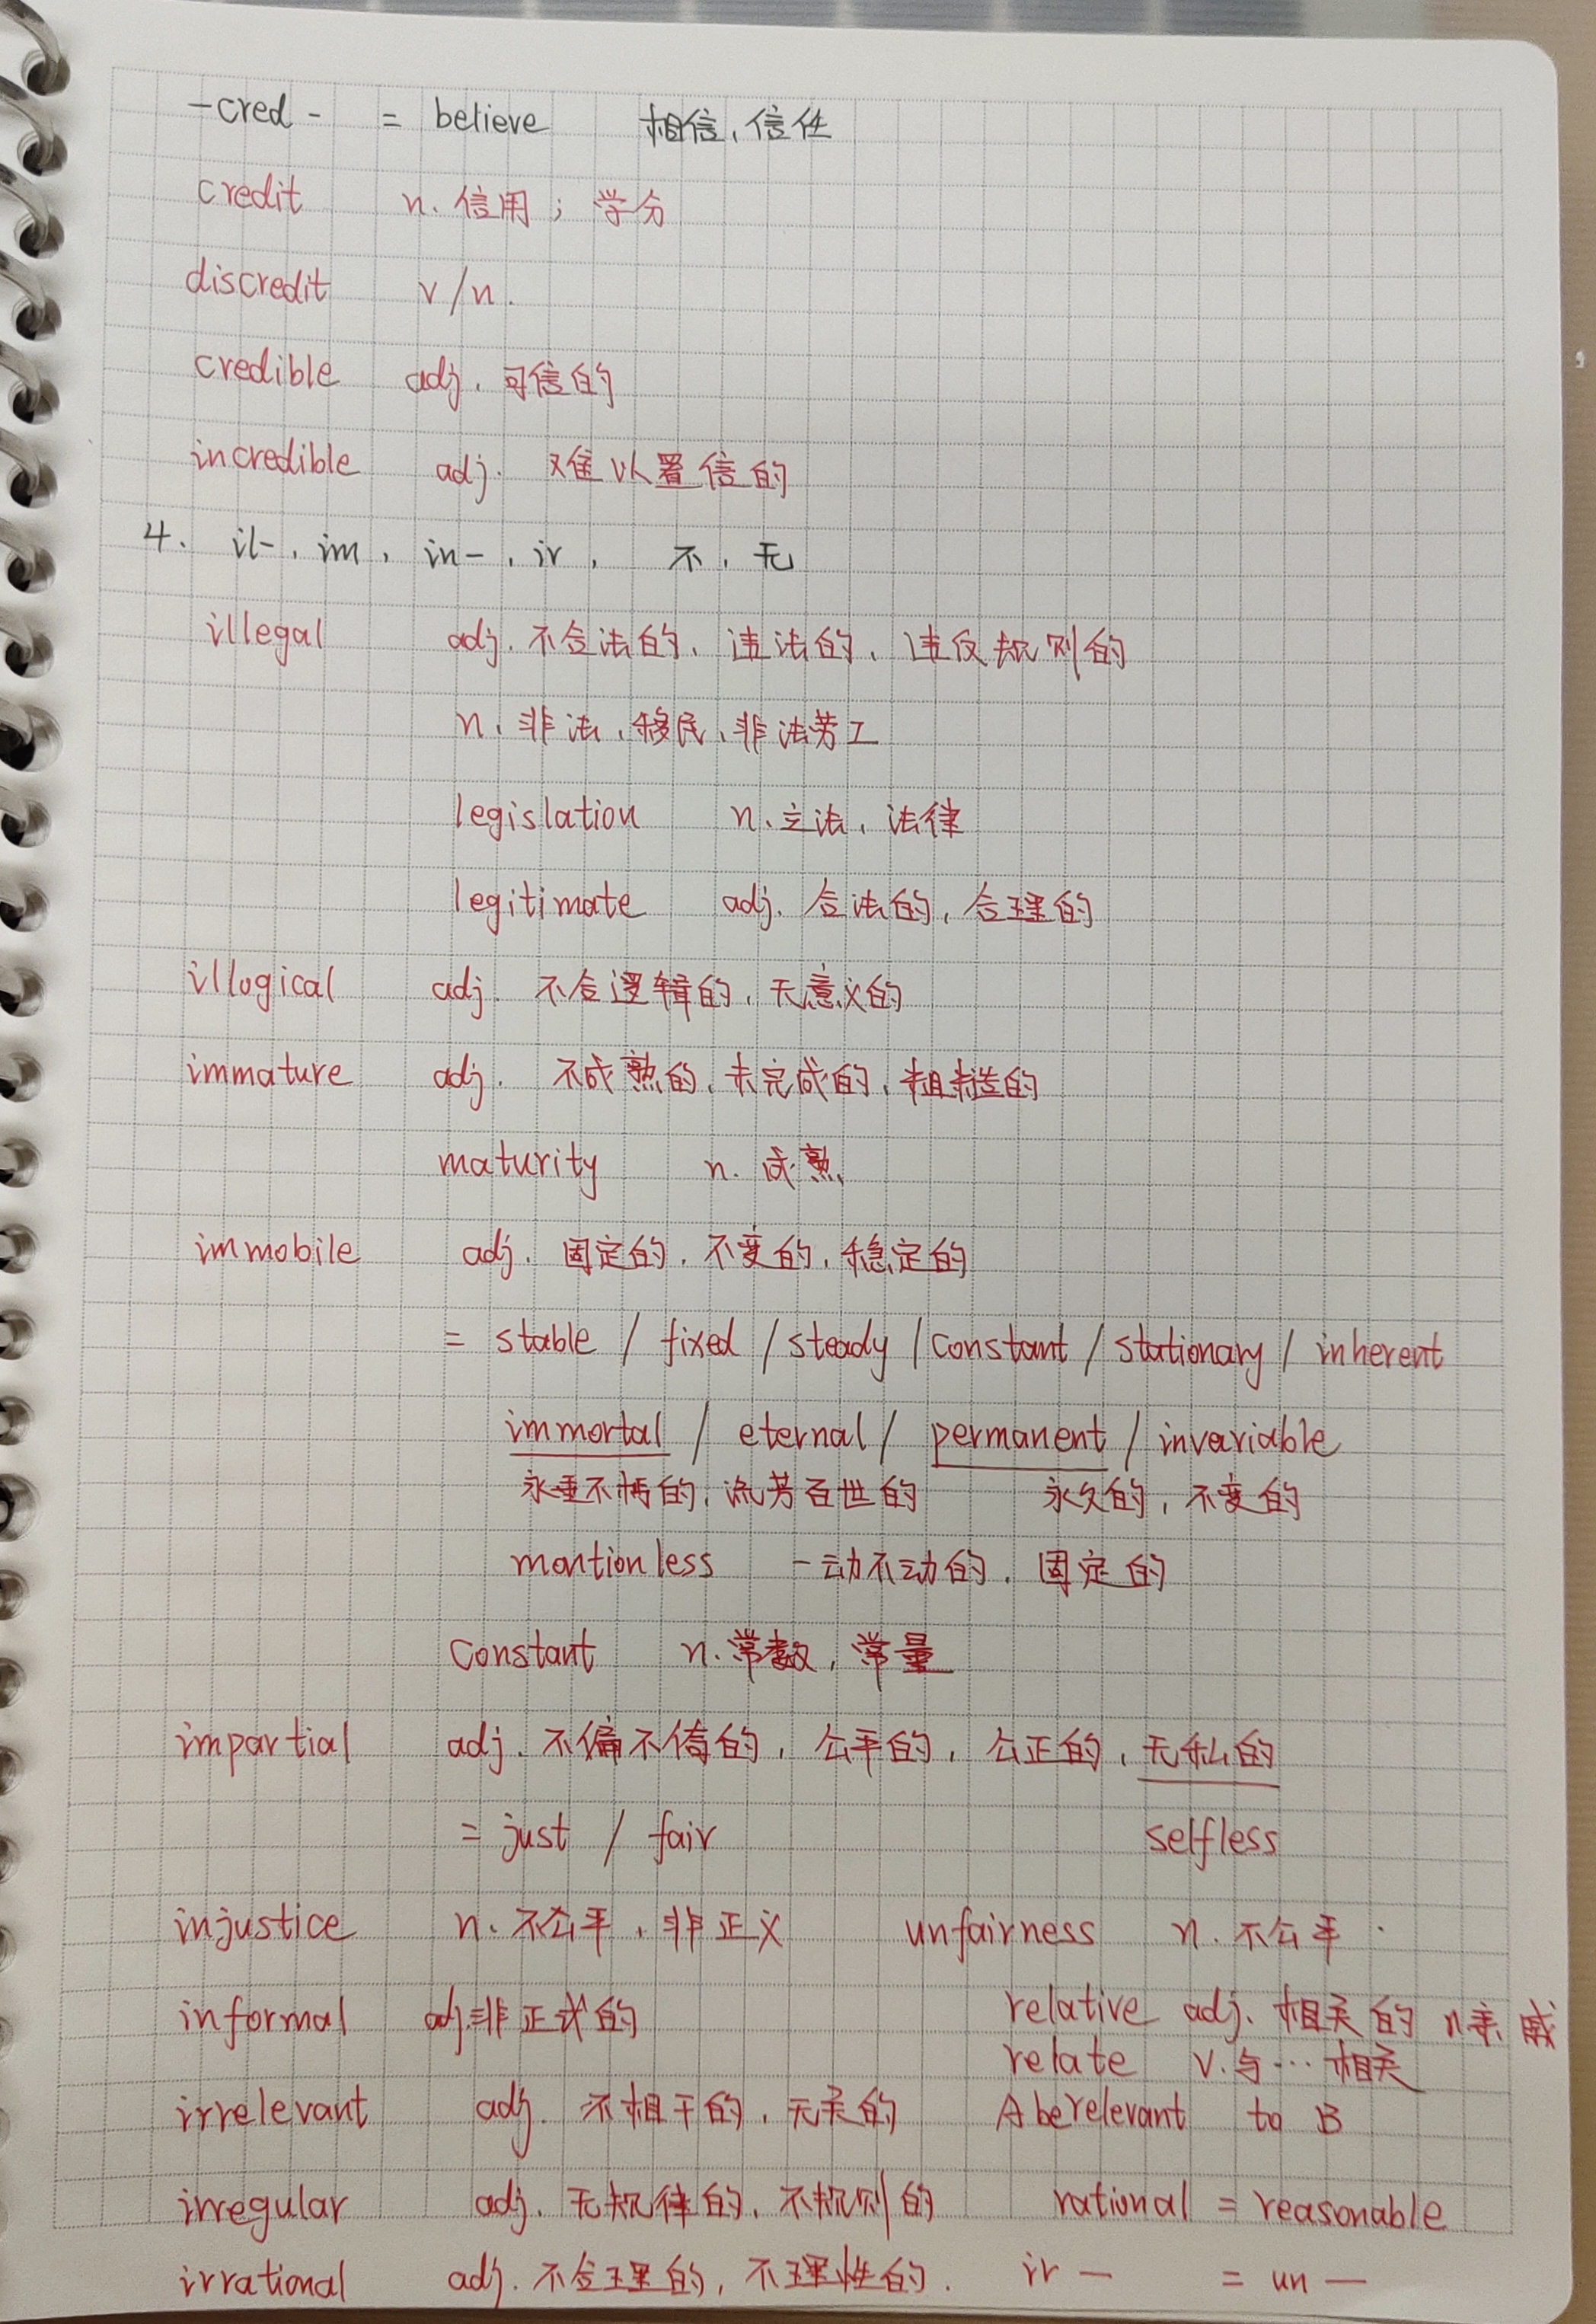 -cred- = believe 相信, 信任
credit n. 信用; 学分
discredit v/n.
credible adj. 可信的
incredible adj. 难以置信的
4. il-, im, in-, ir, 不, 无
illegal adj. 不合法的, 违法的, 违反规则的
n. 非法, 移民, 非法劳工
legislation n. 立法, 法律
legitimate adj. 合法的, 合理的
illogical adj. 不合逻辑的, 无意义的
immature adj. 不成熟的, 未完成的, 粗糙的
maturity n. 成熟
immobile adj. 固定的, 不变的, 稳定的
= stable / fixed / steady / constant / stationary / inherent
immortal / eternal / permanent / invariable
永垂不朽的, 流芳百世的 永久的, 不变的
montionless 一动不动的, 固定的
Constant n. 常数, 常量
impartial adj. 不偏不倚的, 公平的, 公正的, 无私的
= just / fair selfless
injustice n. 不公平, 非正义 unfairness n. 不公平.
informal adj. 非正式的 relative adj. 相关的 n亲戚
relate v. 与… 相关
irrelevant adj. 不相干的, 无关的 A be relevant to B
irregular adj. 无规律的, 不规则的 rational = reasonable
irrational adj. 不合理的, 不理性的. ir — = un —